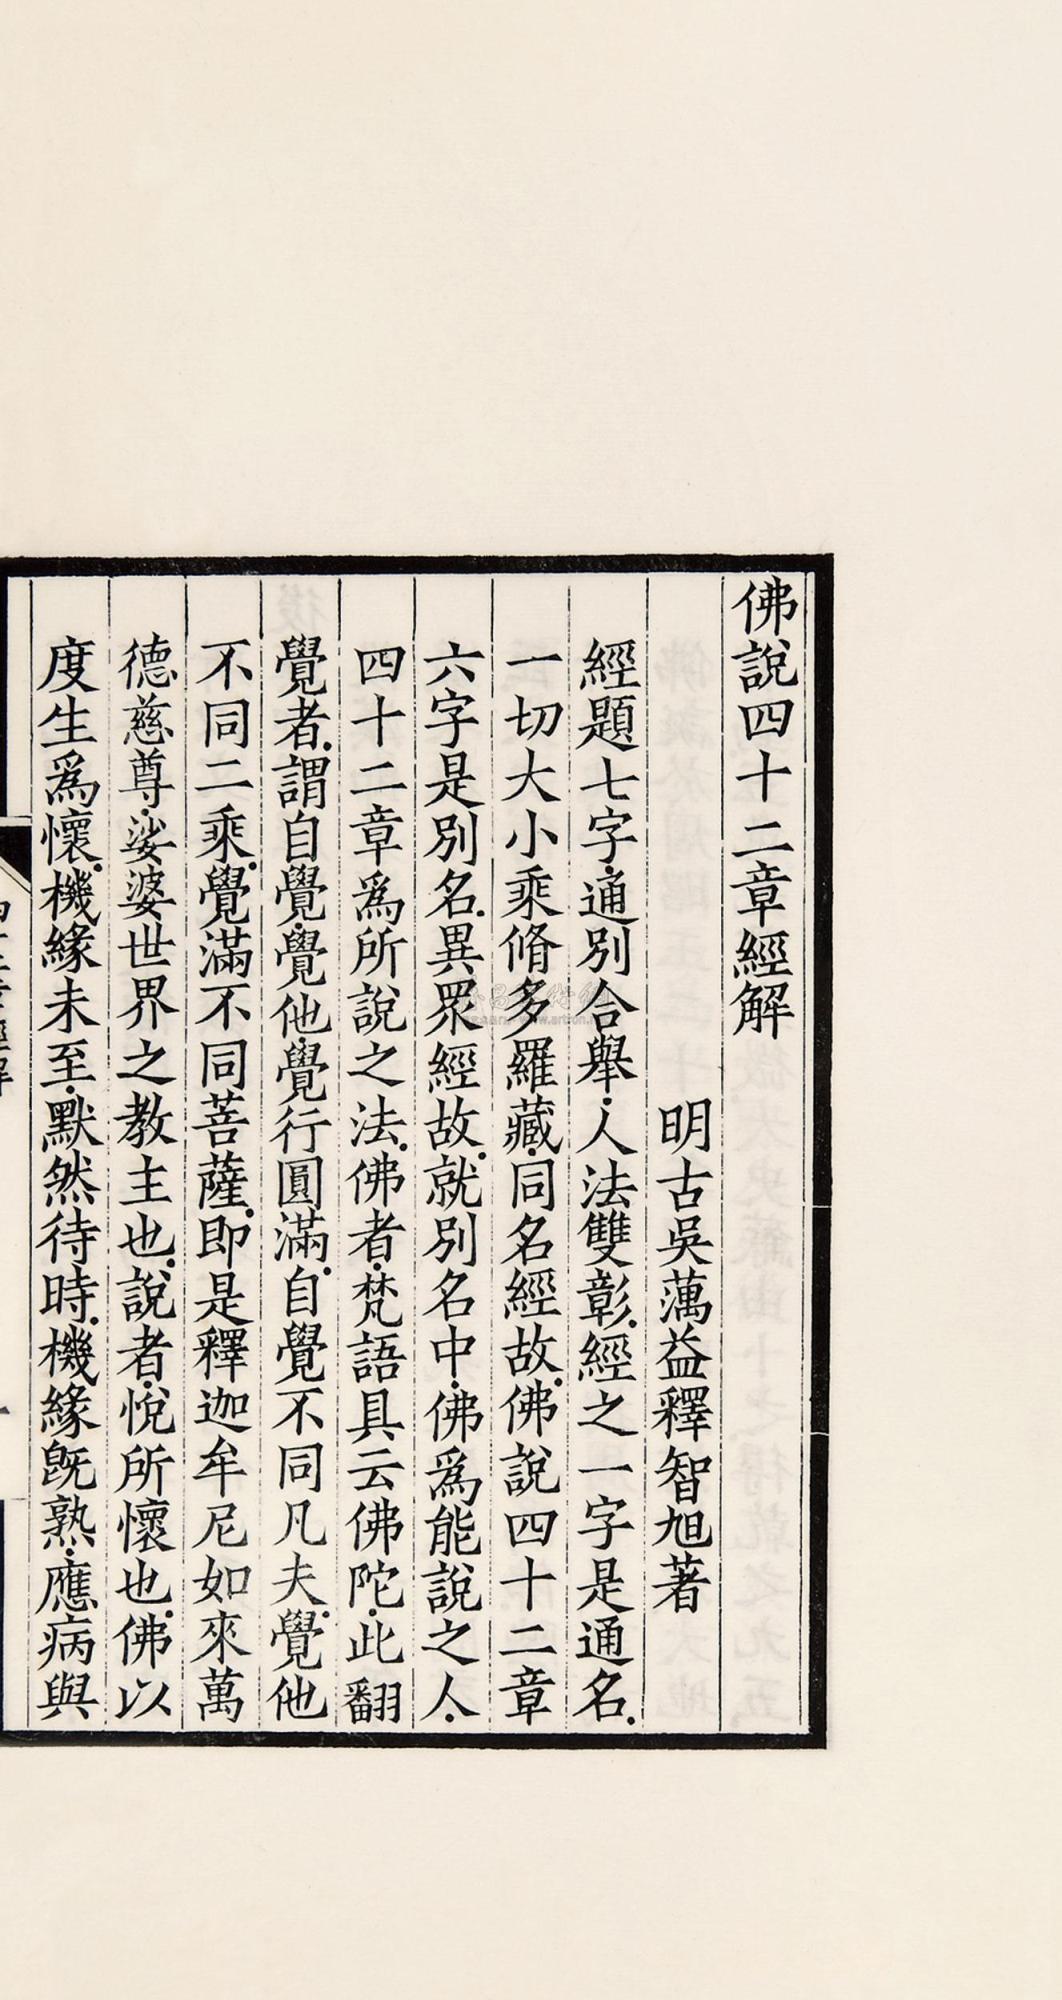 佛說四十二章經解
明古吳蕅益釋智旭著
經題七字.通別合舉.人法雙彰.經之一字是通名.
一切大小乘脩多羅藏.同名經故.佛說四十二章
六字是別名.異眾經故.就別名中.佛爲能說之人.
四十二章爲所說之法.佛者.梵語具云佛陀.此翻
覺者.謂自覺.覺他.覺行圓滿.自覺不同凡夫.覺他
不同二乘.覺滿不同菩薩.即是釋迦牟尼如來萬
德慈尊.娑婆世界之教主也.說者.悅所懷也.佛以
度生爲懷.機緣未至.默然待時.機緣既熟.應病與